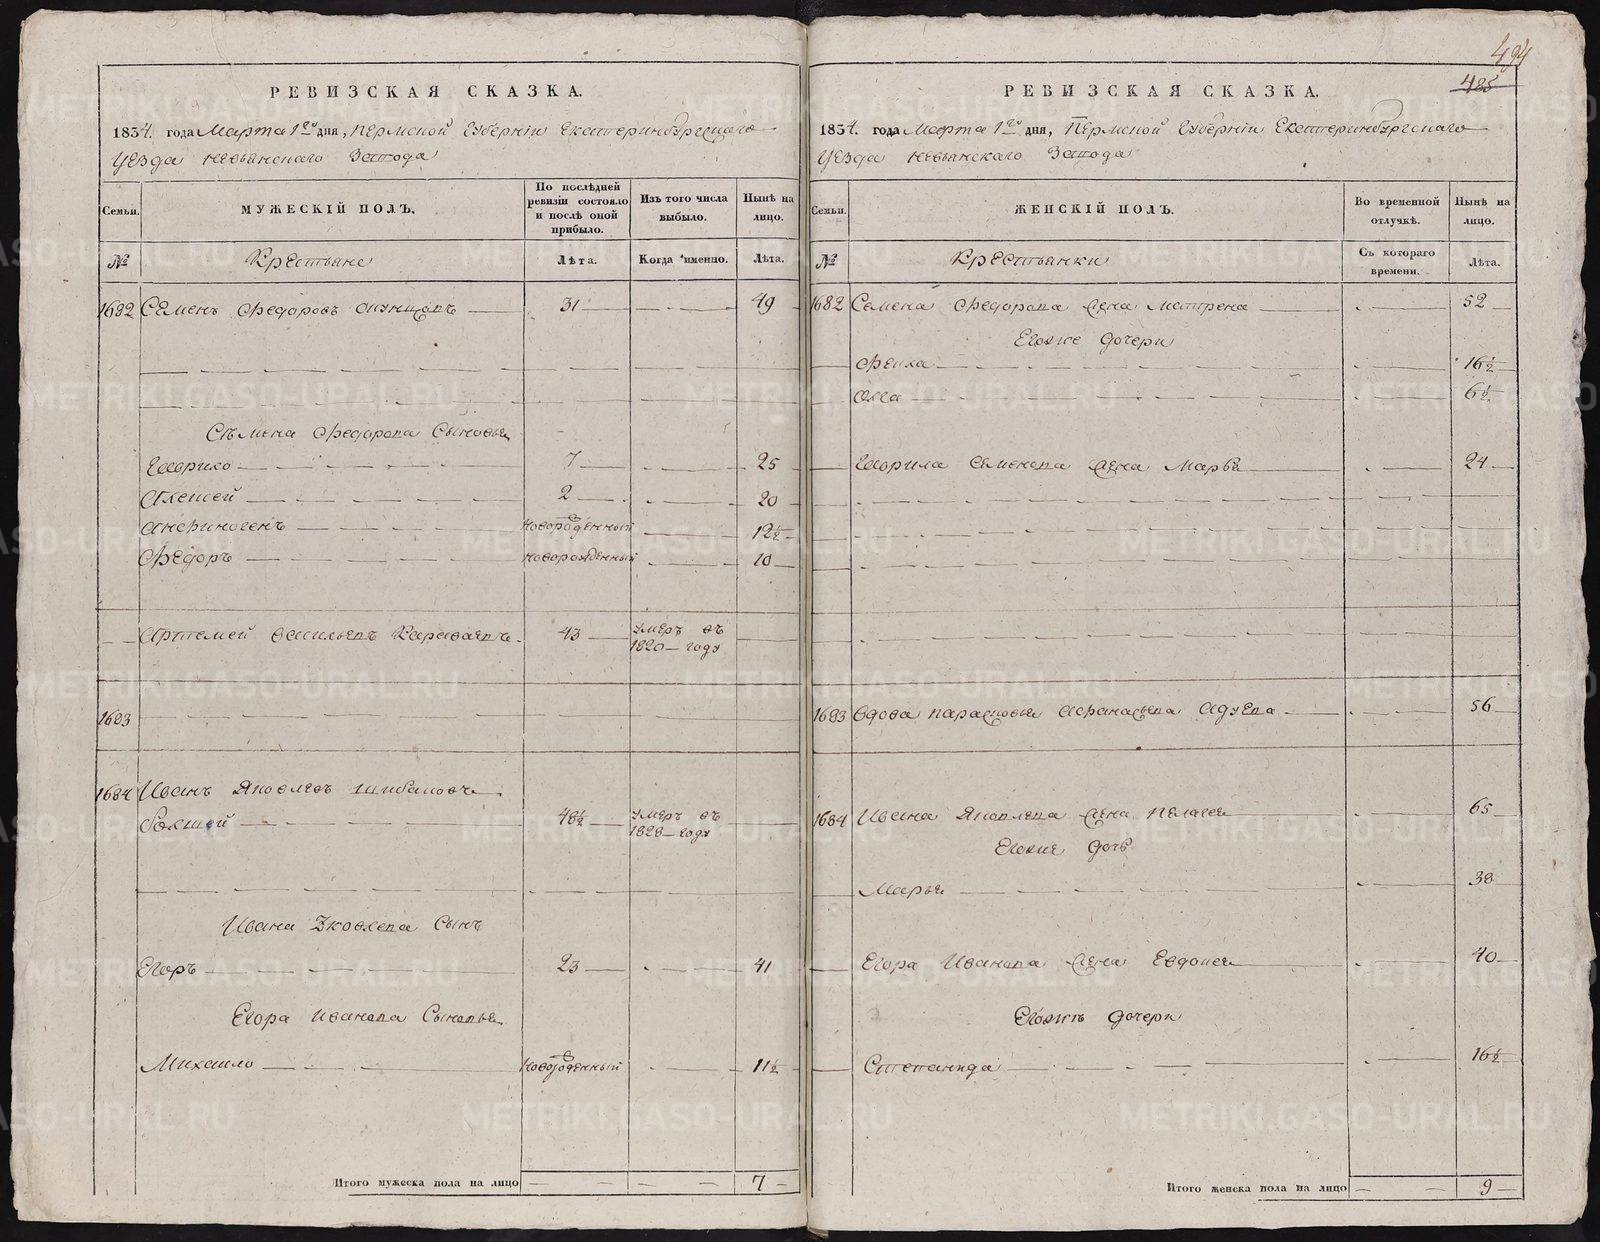 494
485
РЕВИЗСКАЯ СКАЗКА.
1834. года Марта 1го дня, Пермской Губернiи Екатеринбургскаго
уезда Невьянскаго Завода
Семьи.
МУЖЕСКIЙ ПОЛЪ.
По послѣдней ревизiи состояло и послѣ оной прибыло.
Изъ того числа выбыло.
Нынѣ на лицо.
№
Крестьяне
Лѣта.
Когда именно.
Лѣта.
1682 Семенъ Федоровъ 31 49
Семена Федорова Сыновья
Гаврило 7 25
Алексей 2 20
Анфиногенъ Новорожденный 12½
Федоръ Новорожденный 10
Артемей Васильевъ Караваевъ 43 умеръ въ
1820 году
1683
1684 Иванъ Яковлевъ Шибановъ
Большой 48½ умеръ въ
1828 году
Ивана Яковлева Сынъ
Егоръ 23 41
Егора Иванова Сыновья
Михаило Новорожденный 11½
Итого мужеска пола на лицо 7
РЕВИЗСКАЯ СКАЗКА.
1834. года Марта 1го дня, Пермской Губернiи Екатеринбургскаго
уезда Невьянскаго Завода
Семьи.
ЖЕНСКIЙ ПОЛЪ.
Во временной отлучкѣ.
Нынѣ на лицо.
№
Крестьянки
Съ котораго времени.
Лѣта.
1682 Семена Федорова жена Матрена 52
Егоже дочери
Фекла 16½
Олга 6½
Гаврила Семенова жена Марья 24
1683 Вдова Парасковья Афанасьева 56
1684 Ивана Яковлева жена Пелагея 65
Егоже дочь
Марья 38
Егора Иванова жена Евдокея 40
дочери
Степанида 16½
Итого женска пола на лицо 9
METRIKI.GASO-URAL.RU